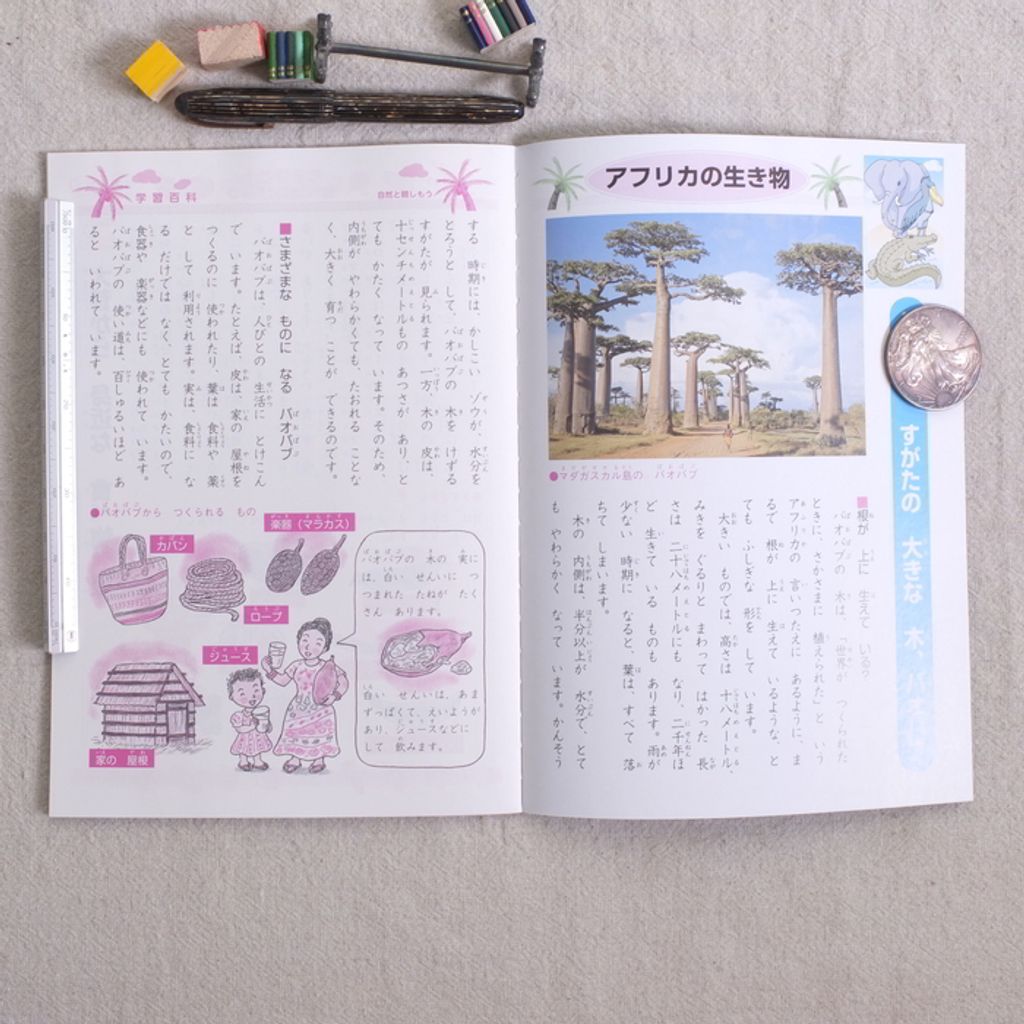 アフリカの生き物
すがたの 大きな 木、バオバブ
●マダガスカル島の バオバブ
■根が 上に 生えて いる?
バオバブの 木は、「世界が つくられた
ときに、さかさまに 植えられた」と いう
アフリカの 言いつたえに あるように、ま
るで 根が 上に 生えて いるような、と
ても ふしぎな 形を して います。
大きい ものでは、高さは 十八メートル、
みきを ぐるりと まわって はかった 長
さは 二十八メートルにも なり、二千年ほ
ど 生きて いる ものも あります。雨が
少ない 時期に なると、葉は、すべて 落
ちて しまいます。
木の 内側は、半分以上が 水分で、とて
も やわらかく なって います。かんそう
学習百科
自然と親しもう
する 時期には、かしこい ゾウが、水分を
とろうと して、バオバブの 木を けずる
すがたが 見られます。一方、木の 皮は、
十センチメートルもの あつさが あり、と
ても かたく なって います。そのため、
内側が やわらかくても、たおれる ことな
く、大きく 育つ ことが できるのです。
■さまざまな ものに なる バオバブ
バオバブは、人びとの 生活に とけこん
で います。たとえば、皮は、家の 屋根を
つくるのに 使われたり、葉は 食料や 薬
と して 利用されます。実は、食料に な
る だけでは なく、とても かたいので、
食器や 楽器などにも 使われて います。
バオバブの 使い道は、百しゅるいほど あ
ると いわれて います。
●バオバブから つくられる もの
カバン
ロープ
楽器(マラカス)
ジュース
家の 屋根
バオバブの 木の 実に
は、白い せんいに つ
つまれた たねが たく
さん あります。
白い せんいは、あま
ずっぱくて、えいようが
あり、ジュースなどに
して 飲みます。